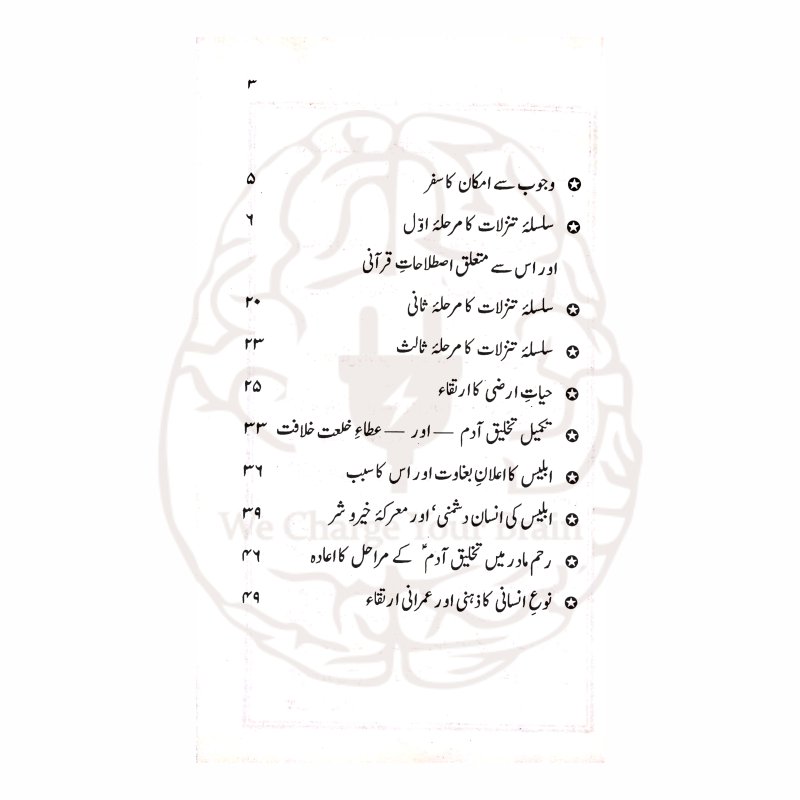 ۳
✪ وجوب سے امکان کا سفر ۵
✪ سلسلۂ تنزلات کا مرحلۂ اوّل ۶
اور اس سے متعلق اصطلاحاتِ قرآنی
✪ سلسلۂ تنزلات کا مرحلۂ ثانی ۲۰
✪ سلسلۂ تنزلات کا مرحلۂ ثالث ۲۳
✪ حیاتِ ارضی کا ارتقاء ۲۵
✪ تکمیل تخلیق آدم — اور — عطاءِ خلعت خلافت ۳۳
✪ ابلیس کا اعلانِ بغاوت اور اس کا سبب ۳۶
✪ ابلیس کی انسان دشمنی، اور معرکۂ خیر و شر ۳۹
We Charge Your Brain
✪ رحم مادر میں تخلیق آدمؑ کے مراحل کا اعادہ ۴۶
✪ نوعِ انسانی کا ذہنی اور عمرانی ارتقاء ۴۹